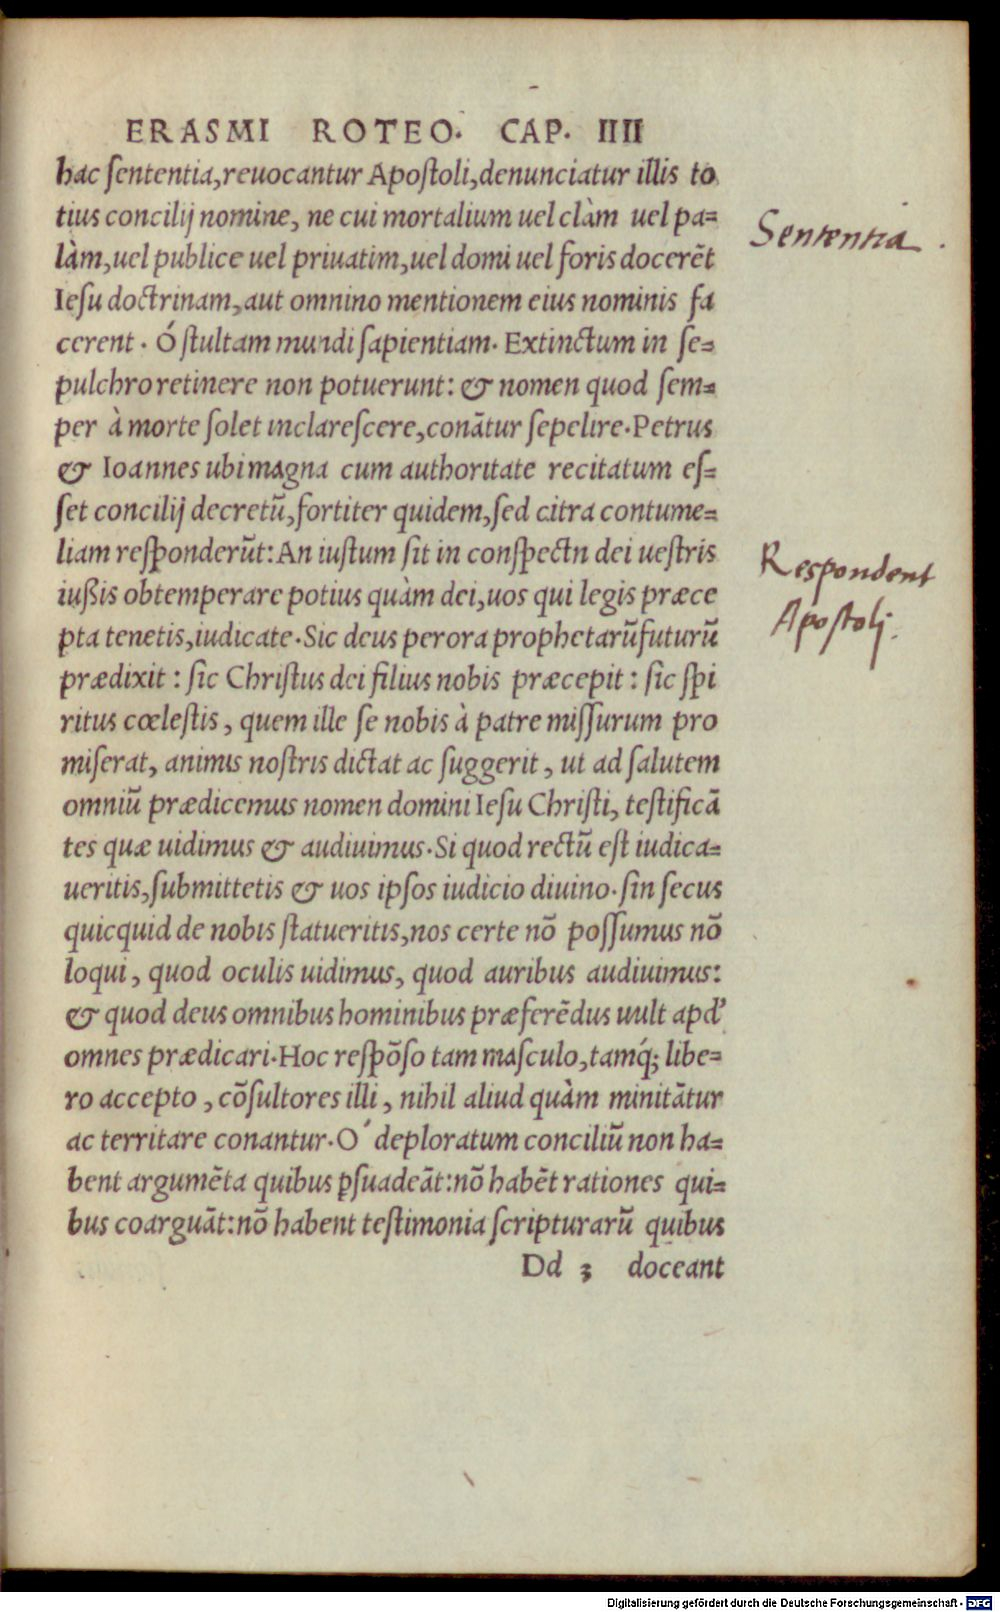 ERASMI ROTEO. CAP. IIII
hac sententia, reuocantur Apostoli, denunciatur illis to
tius concilij nomine, ne cui mortalium uel clàm uel pa=
làm, uel publice uel priuatim, uel domi uel foris docerēt
Iesu doctrinam, aut omnino mentionem eius nominis fa
cerent. Ó stultam mundi sapientiam. Extinctum in se=
pulchro retinere non potuerunt: & nomen quod sem=
per à morte solet inclarescere, conātur sepelire. Petrus
& Ioannes ubi magna cum authoritate recitatum es=
set concilij decretū, fortiter quidem, sed citra contume=
liam responderūt: An iustum sit in conspectn dei uestris
iußis obtemperare potius quàm dei, uos qui legis præce
pta tenetis, iudicate. Sic deus per ora prophetarū futurū
prædixit: sic Christus dei filius nobis præcepit: sic spi
ritus cœlestis, quem ille se nobis à patre missurum pro
miserat, animis nostris dictat ac suggerit, ut ad salutem
omniū prædicemus nomen domini Iesu Christi, testificā
tes quæ uidimus & audiuimus. Si quod rectū est iudica=
ueritis, submittetis & uos ipsos iudicio diuino. sin secus
quicquid de nobis statueritis, nos certe nō possumus nō
loqui, quod oculis uidimus, quod auribus audiuimus:
& quod deus omnibus hominibus præferēdus uult apd'
omnes prædicari. Hoc respōso tam masculo, tamq́; libe=
ro accepto, cōsultores illi, nihil aliud quàm minitātur
ac territare conantur. O´ deploratum conciliū non ha=
bent argumēta quibus ꝑsuadeāt: nō habēt rationes qui=
bus coarguāt: nō habent testimonia scripturarū quibus
Dd 3 doceant
Sententia.
Respondent
Apostolj.
Digitalisierung gefördert durch die Deutsche Forschungsgemeinschaft - DFG